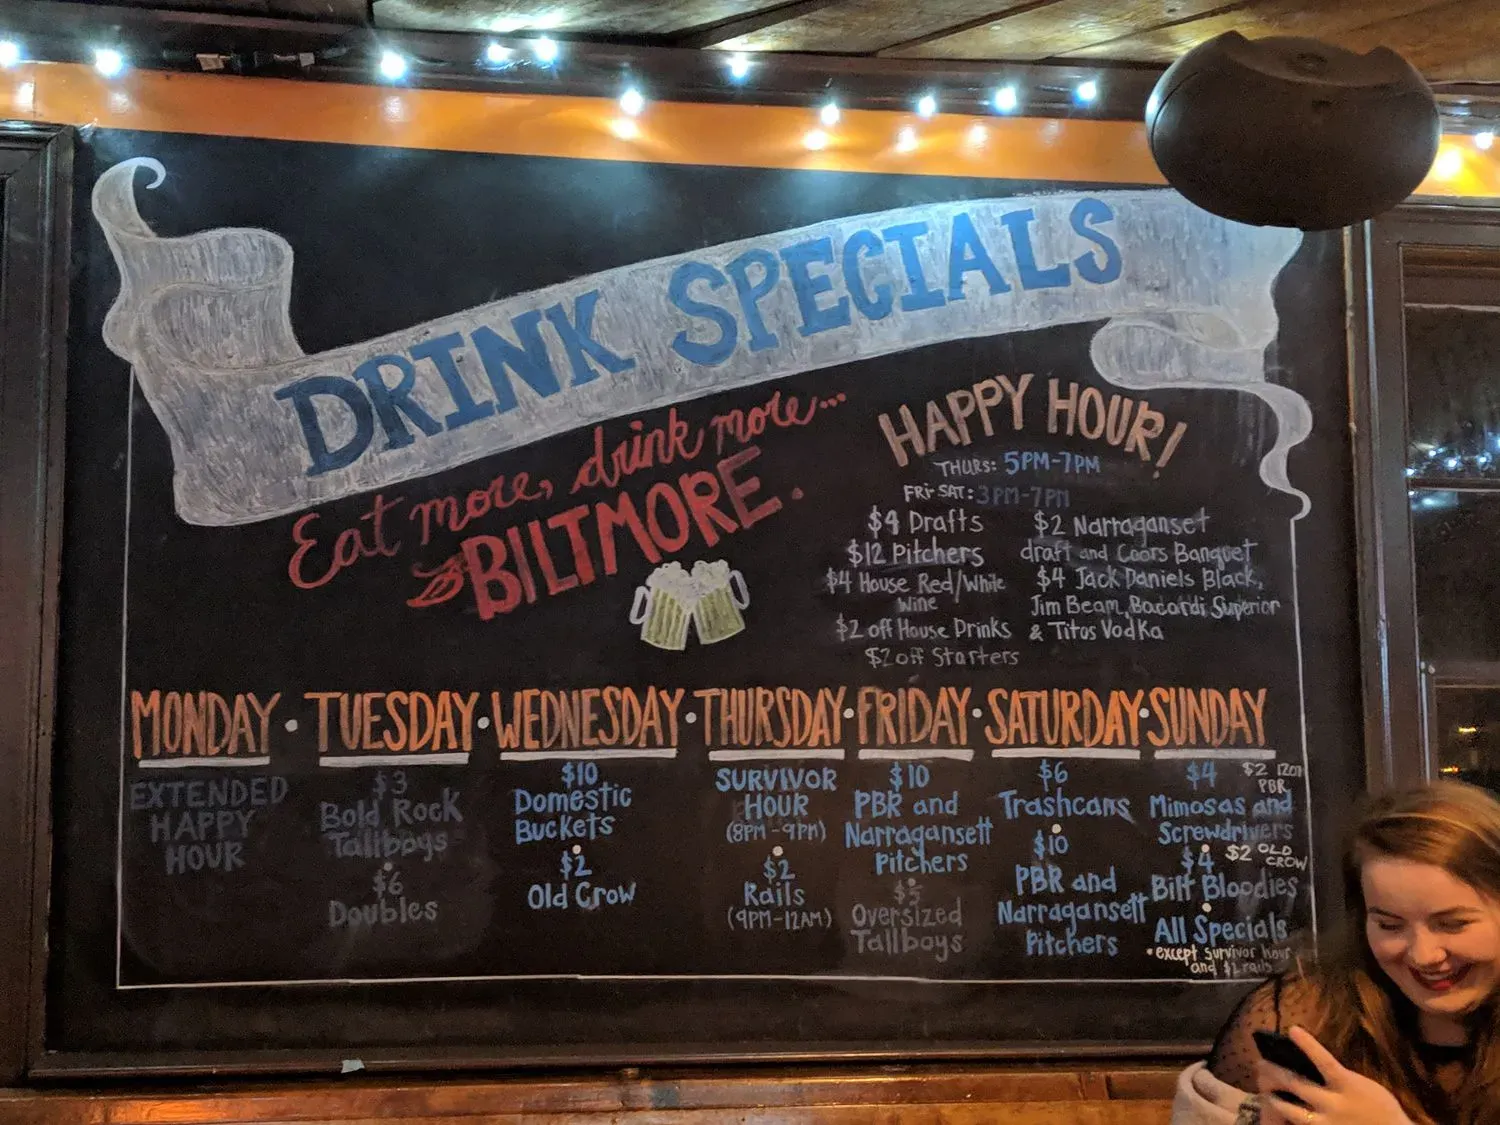 DRINK SPECIALS
Eat more, drink more...
BILTMORE.
HAPPY HOUR!
THURS: 5PM-7PM
FRI-SAT: 3PM-7PM
$4 Drafts
$12 Pitchers
$4 House Red/White
Wine
$2 off House Drinks
$2 off Starters
$2 Narraganset
draft and Coors Banquet
$4 Jack Daniels Black,
Jim Beam, Bacardi Superior
& Titos Vodka
MONDAY • TUESDAY • WEDNESDAY • THURSDAY • FRIDAY • SATURDAY • SUNDAY
EXTENDED
HAPPY
HOUR
$3
Bold Rock
Tallboys
•
$6
Doubles
$10
Domestic
Buckets
•
$2
Old Crow
SURVIVOR
HOUR
(8PM-9PM)
•
$2
Rails
(9PM-12AM)
$10
PBR and
Narragansett
Pitchers
•
$5
Oversized
Tallboys
$6
Trashcans
•
$10
PBR and
Narragansett
Pitchers
$4
Mimosas and
Screwdrivers
•
$4
Bilt Bloodies
•
All Specials
• except Survivor hour
and $2 rails
$2 12oz
PBR
$2 OLD
CROW